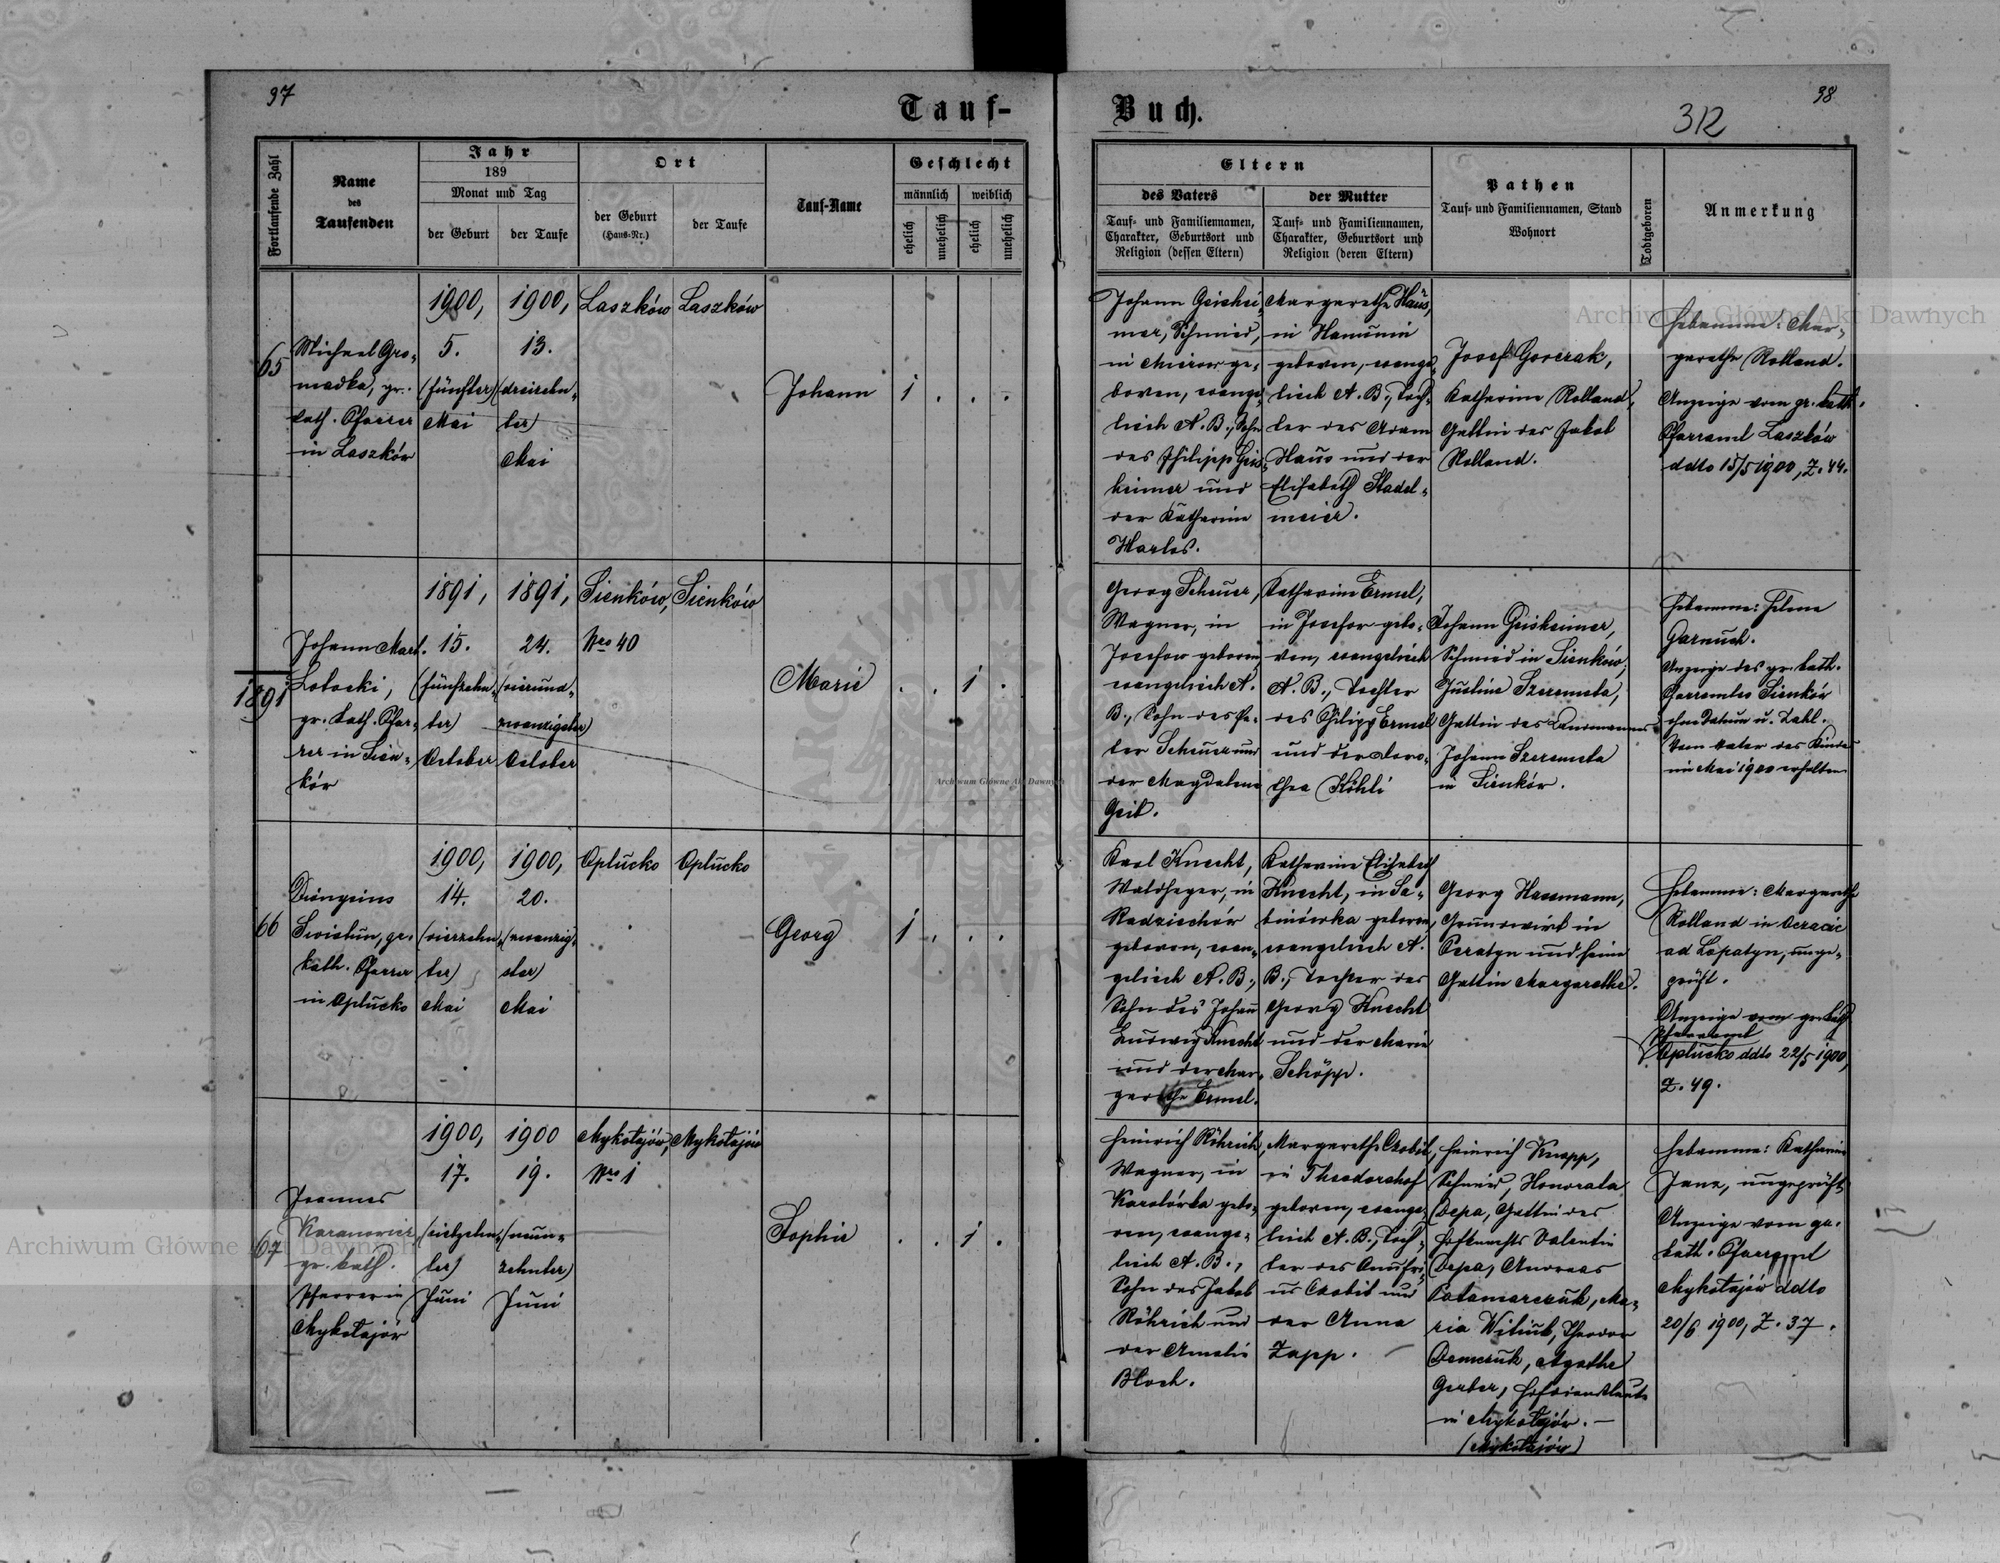 97
98
312
Tauf-
Buch.
Fortlaufende Zahl
Name
des
Taufenden
Jahr
189
Monat und Tag
der Geburt
der Taufe
Ort
der Geburt
(Haus-Nr.)
der Taufe
Tauf-Name
Geschlecht
männlich
weiblich
ehelich
unehelich
ehelich
unehelich
Eltern
des Vaters
Tauf- und Familiennamen,
Charakter, Geburtsort und
Religion (dessen Eltern)
der Mutter
Tauf- und Familiennamen,
Charakter, Geburtsort und
Religion (deren Eltern)
Pathen
Tauf- und Familiennamen, Stand
Wohnort
Todtgeboren
Anmerkung
65
Michael Gro-
madka, gr.
kath. Pfarrer
in Laszków
1900,
5.
(fünfter)
Mai
1900,
13.
(dreizehn-
ter)
Mai
Laszków
Laszków
Johann
1 . . .
Johann Geishei-
mer, Schmied,
in Mierow ge-
boren, evange-
lisch A. B., Sohn
des Philipp Geis-
heimer und
der Katharina
Harles.
Margarethe Haüs,
in Hanunin
geboren, evange-
lisch A. B., Toch-
ter des Adam
Haüs und der
Elisabeth Stadel-
meier.
Josef Gorczak,
Katharina Rolland,
Gattin des Jakob
Rolland.
Hebamme: Mar-
garethe Rolland.
Anzeige vom gr. kath.
Pfarramt Laszków
ddto 15/5 1900, Z. 44.
1891
Johann Marl.
Lotocki,
gr. kath. Pfar-
rer in Sien-
ków
1891,
15.
(fünfzehn-
ter)
October
1891,
24.
(vierund-
zwanzigster)
October
Sienków,
Nro 40
Sienków
Marie
. . 1 .
Georg Scheuer,
Wagner, in
Josefow geboren,
evangelisch A.
B., Sohn des Pe-
ter Scheuer und
der Magdalena
Geib.
Katharina Ermel,
in Josefow gebo-
ren, evangelisch
A. B., Tochter
des Philipp Ermel
und der Doro-
thea Köhli
Johann Geisheimer,
Schmied in Sienków,
Justina Szeremeta,
Gattin des Landmannes
Johann Szeremeta
in Sienków.
Hebamme: Helena
Garnuch.
Anzeige des gr. kath.
Pfarramtes Sienków
ohne Datum u. Zahl.
Vom Vater des Kindes
im Mai 1900 erhalten
66
Dionysius
Swistun, gr.
kath. Pfarrer
in Oplucko
1900,
14.
(vierzehn-
ter)
Mai
1900,
20.
(zwanzig-
ster)
Mai
Oplucko
Oplucko
Georg
1 . . .
Karl Knecht,
Waldheger, in
Radziechów
geboren, evan-
gelisch A. B.,
Sohn des Johann
Ludwig Knecht
und der Mar-
garethe Ermel.
Katharina Elisabeth
Knecht, in Sa-
binówka geboren,
evangelisch A.
B., Tochter des
Georg Knecht
und der Maria
Schöpp.
Georg Hassmann,
Grundwirt in
Peratyn und seine
Gattin Margarethe.
Hebamme: Margarethe
Rolland in
ad Lopatyn, unge-
prüft.
Anzeige vom gr. kath.
Pfarramt
Oplucko ddto 22/5 1900,
Z. 49.
67
Joannes
Karanowicz
gr. kath.
Pfarrer in
Mykołajów
1900,
17.
(siebzehn-
ter)
Juni
1900
19.
(neun-
zehnter)
Juni
Mykołajów,
Nro 1
Mykołajów
Sophie
. . 1 .
Heinrich Röhrich,
Wagner, in
Karolówka gebo-
ren, evange-
lisch A. B.,
Sohn des Jakob
Röhrich und
der Amalie
Bloch.
Margarethe Czobit,
in Theodorshof
geboren, evange-
lisch A. B., Toch-
ter des Onufri-
us Czobit und
der Anna
Zapp.
Heinrich Knapp,
Schmied, Honorata
Depa, Gattin des
Hofknechts Valentin
Depa, Andreas
Palamarczuk, Ma-
ria Witiuk, Theodor
Demczuk, Agathe
Gerber, Hofdienstleute
in Mykołajów. —
(Mykołajów)
Hebamme: Katharina
Jana, ungeprüft
Anzeige vom gr.
kath. Pfarramt
Mykołajów ddto
20/6 1900, Z. 37.
Archiwum Główne Akt Dawnych
Archiwum Główne Akt Dawnych
Archiwum Główne Akt Dawnych